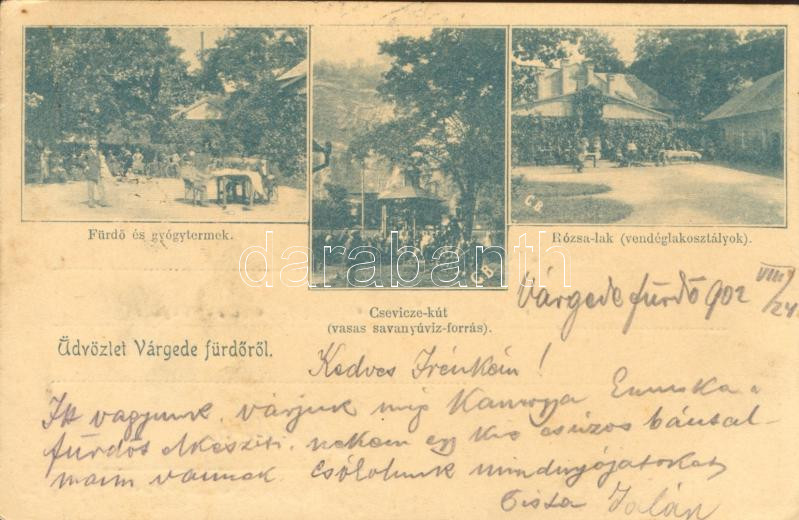 Fürdő és gyógytermek.
Csevicze-kút
(vasas savanyúvíz-forrás).
Rózsa-lak (vendéglakosztályok).
C.B.
C.B.
darabanth
Üdvözlet Várgede fürdőről.
Várgede fürdő 902 VIII/24
Kedves Irénkém!
Itt vagyunk, várjuk míg
fürdőt elkészíti. nekem egy kis csúzos bántal-
maim vannak. Csólolunk mindnyájatokat
Jolán